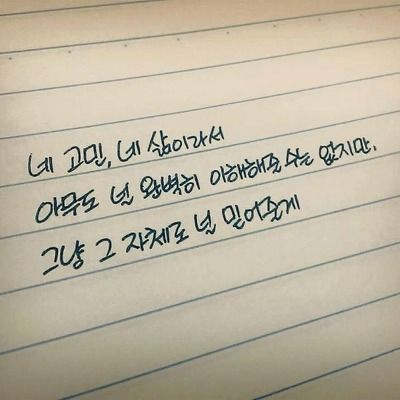 네 고민, 네 삶이라서
아무도 널 완벽히 이해해줄 수는 없지만,
그냥 그 자체로 널 믿어줄게